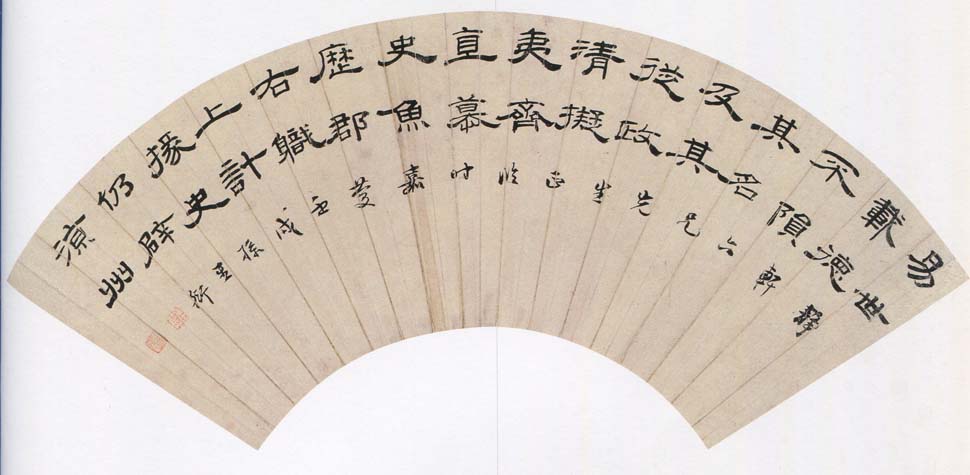 易世
載德
不隕
其名
及其
從政
清擬
夷齊
直慕
史魚
歷郡
右職
上計
掾史
仍辟
涼州
靜軒六兄先生正临时嘉慶壬戌孫星衍